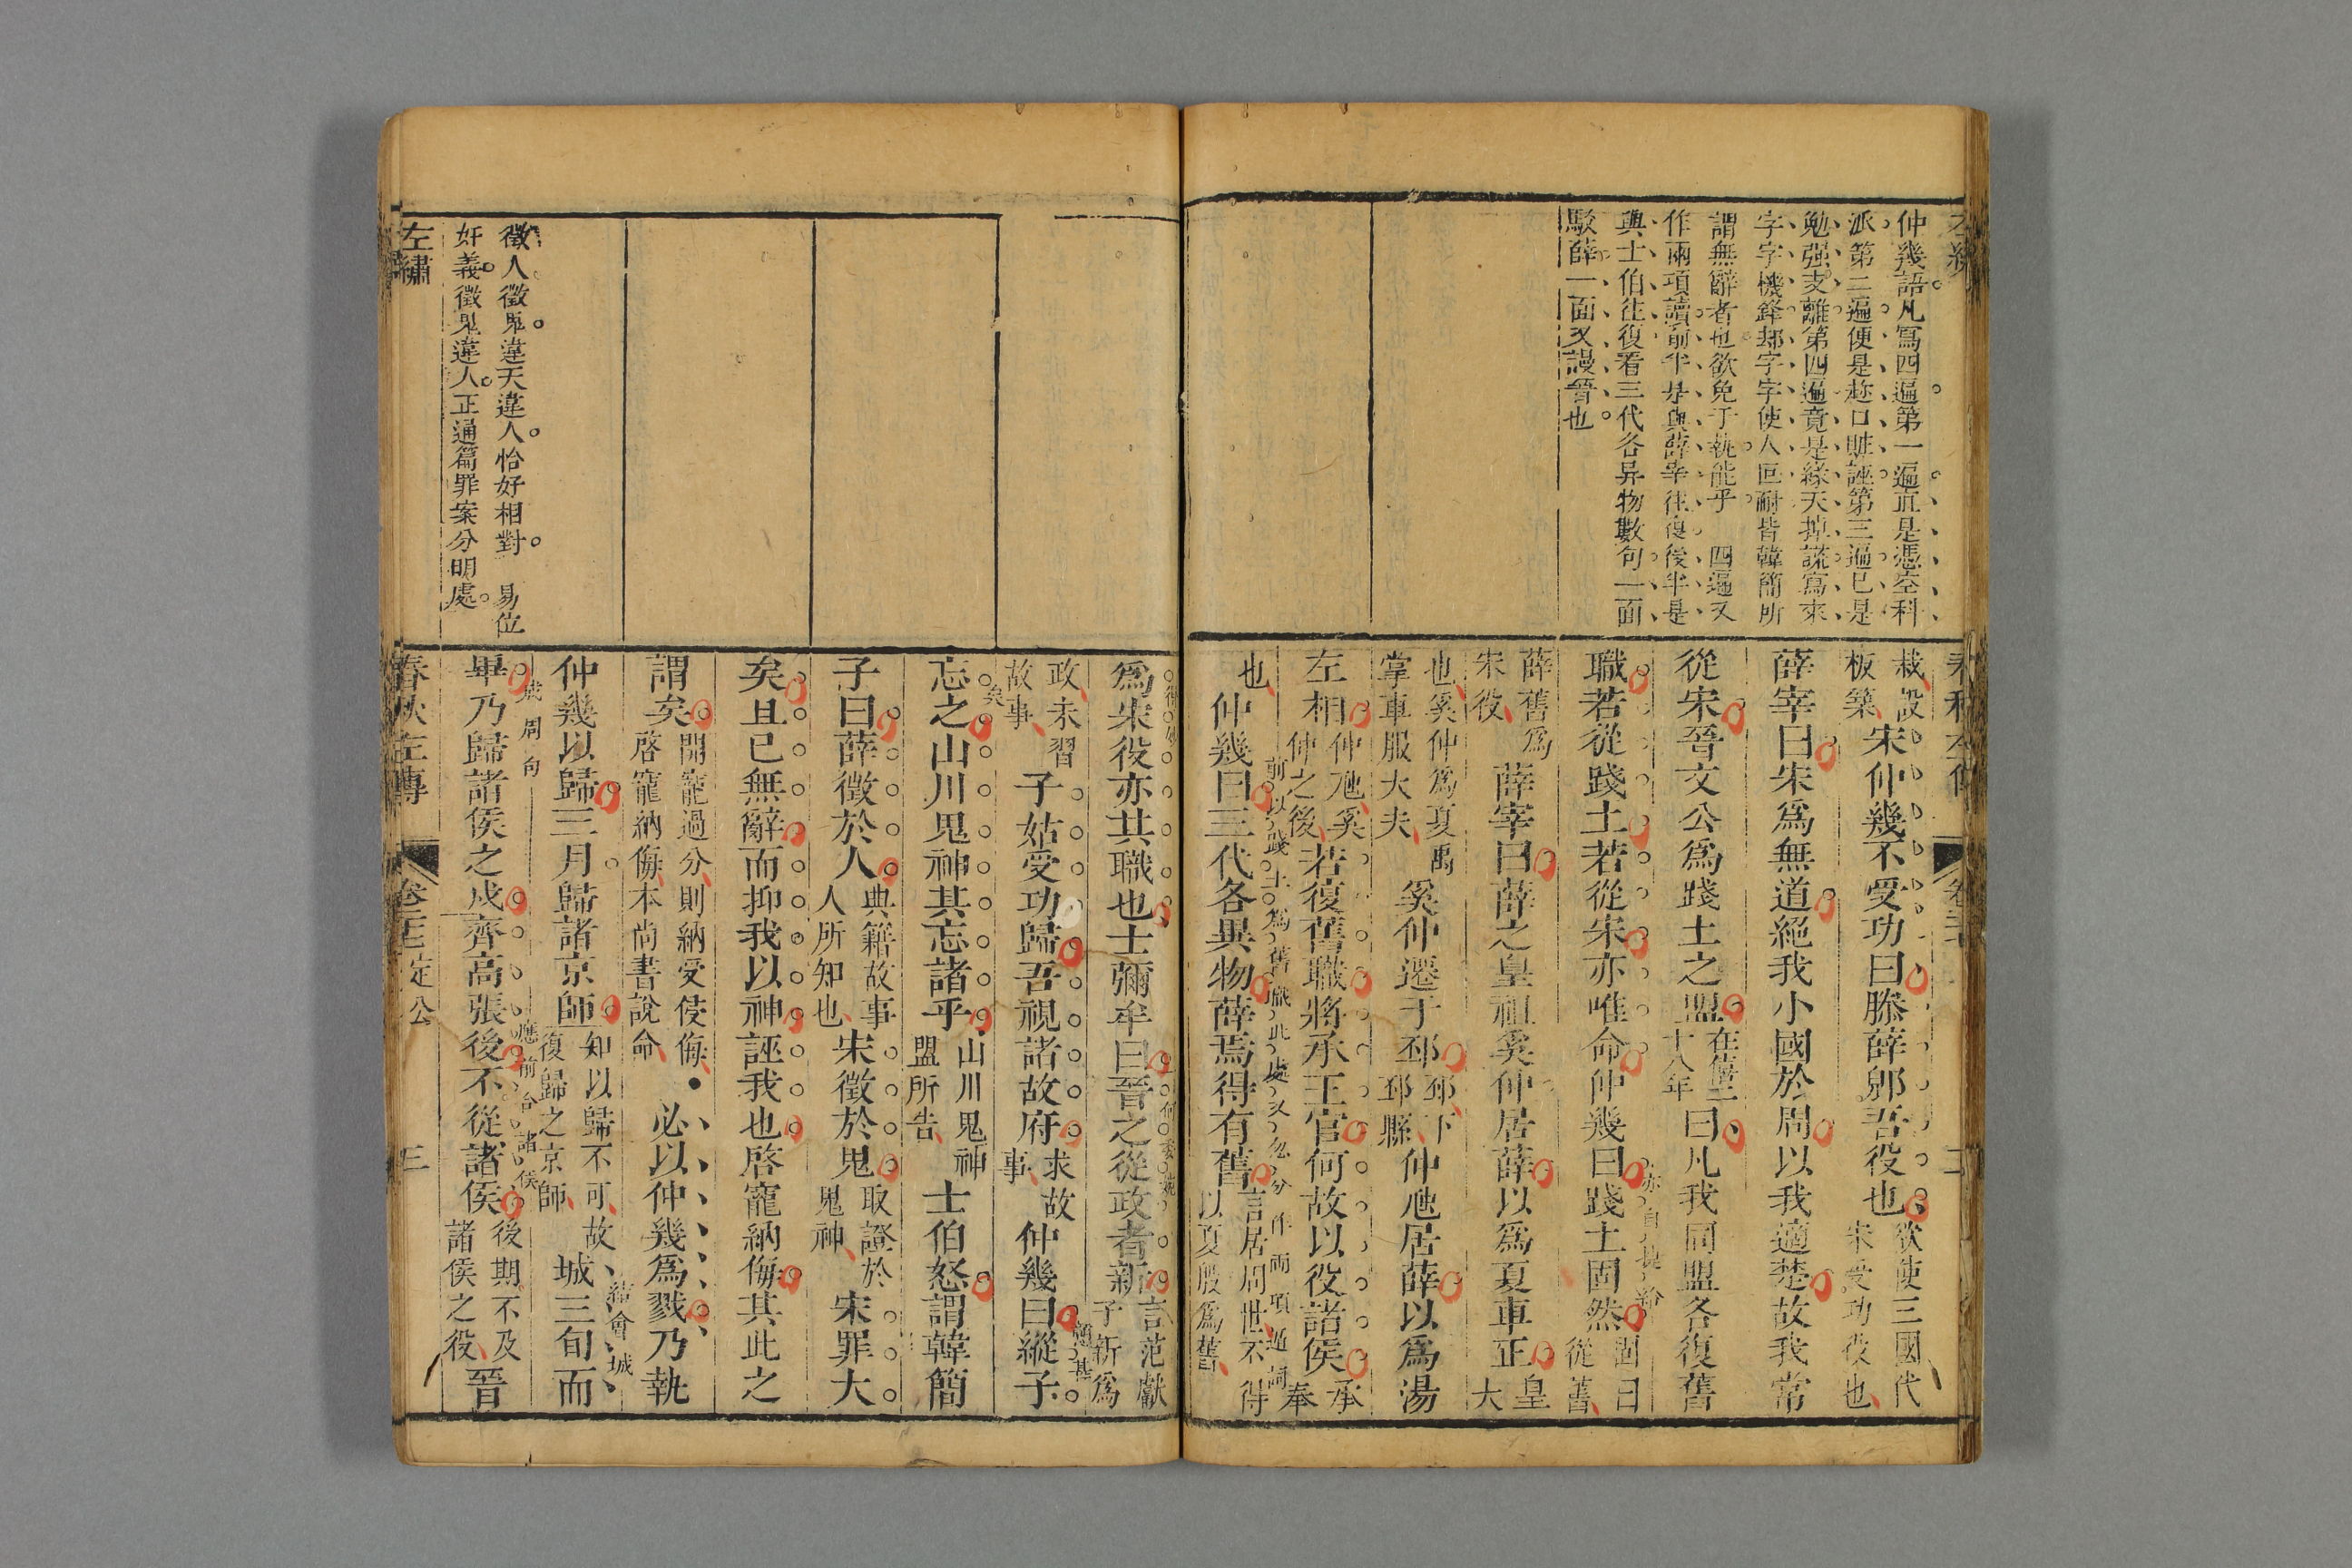 仲幾語凡寫四遍第一遍直是憑空科
派第二遍便是趂口賍誣第三遍已是
勉强支離第四遍竟是緣天掉謊寫來
字字機鋒却字字使人叵耐皆韓簡所
謂無辭者也欲免于執能乎　四遍又
作兩項讀前半是與薛宰往復後半是
與士伯往復看三代各异物數句一面
駁薛一面又謾晉也
栽設板築宋仲幾不受功曰滕薛郳吾役也欲使三國代宋受功役也
薛宰曰宋爲無道絕我小國於周以我適楚故我常
從宋晉文公爲踐土之盟在僖二十八年曰凡我同盟各復舊
職若從踐土若從宋亦唯命仲幾曰踐土固然固曰從舊
薛舊爲宋役薛宰曰薛之皇祖奚仲居薛以爲夏車正皇大
也奚仲爲夏禹掌車服大夫奚仲遷于邳邳下邳縣仲虺居薛以爲湯
左相仲虺奚仲之後若復舊職將承王官何故以役諸侯承奉
前以踐土爲舊職此處又忽分作兩項遁詞
也仲幾曰三代各異物薛焉得有舊言居周世不得以夏殷爲舊
爲宋役亦其職也士彌牟曰晉之從政者新言范獻子新爲
政未習故事子姑受功歸吾視諸故府求故事仲幾曰縱子
忘之山川鬼神其忘諸乎山川鬼神盟所告士伯怒謂韓簡
子曰薛徵於人典籍故事人所知也宋徵於鬼取證於鬼神宋罪大
矣且已無辭而抑我以神誣我也啓寵納侮其此之
謂矣開寵過分則納受侮本尚書說命必以仲幾爲戮乃執
結會城
仲幾以歸三月歸諸京師知以歸不可故復歸之京師城三旬而
成周句
應前合諸侯
畢乃歸諸侯之戍齊高張後不從諸侯後期不及諸侯之役晉
徵人徵鬼違天違人恰好相對　易位
奸義徵鬼違人正通篇罪案分明處
左繡
春秋左傳
定公
三